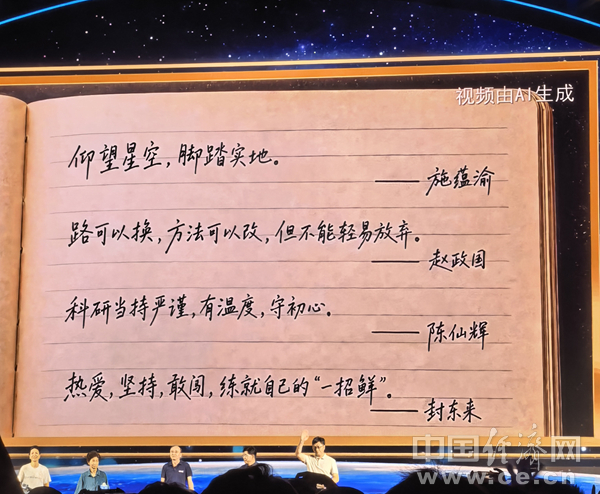 视频由AI生成
仰望星空，脚踏实地。
——施蕴渝
路可以换，方法可以改，但不能轻易放弃。
——赵政国
科研当持严谨，有温度，守初心。
——陈仙辉
热爱，坚持，敢闯，练就自己的“一招鲜”。
——封东来
中国经济网
www.ce.cn